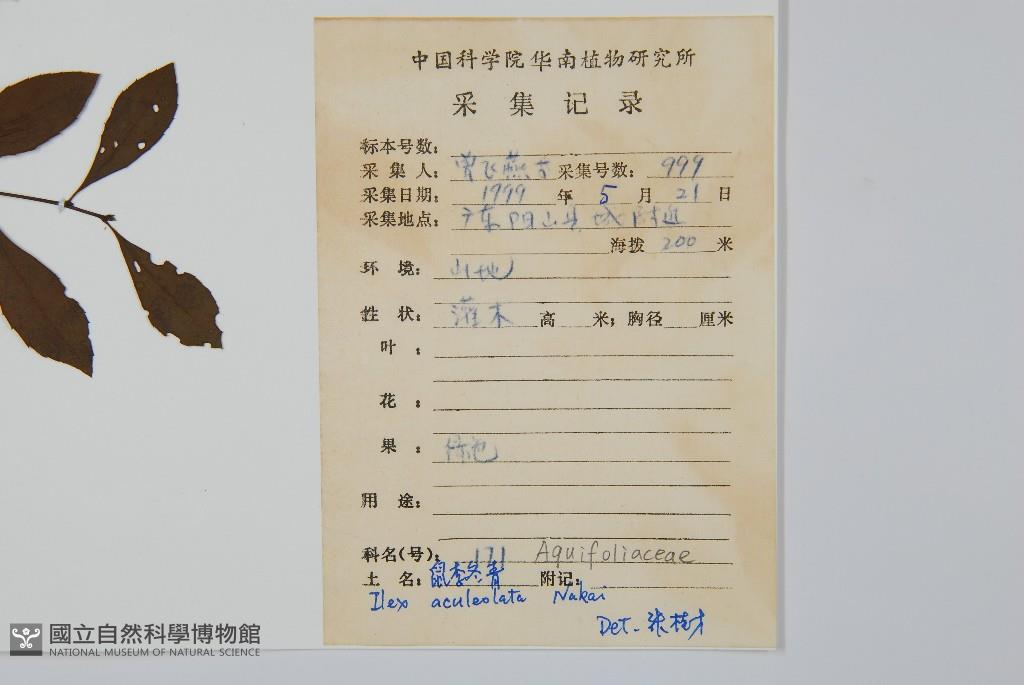 中国科学院华南植物研究所
采集记录
标本号数：
采集人：曾飞燕等 采集号数：999
采集日期：1999年5月21日
采集地点：广东阳山县城附近
海拨200米
环境：山地
性状：灌木 高 米；胸径 厘米
叶：
花：
果：绿色
用途：
科名(号)：171 Aquifoliaceae
土名：鼠李冬青 附记：
Ilex aculeolata Nakai
Det. 张桂才
國立自然科學博物館
NATIONAL MUSEUM OF NATURAL SCIENCE